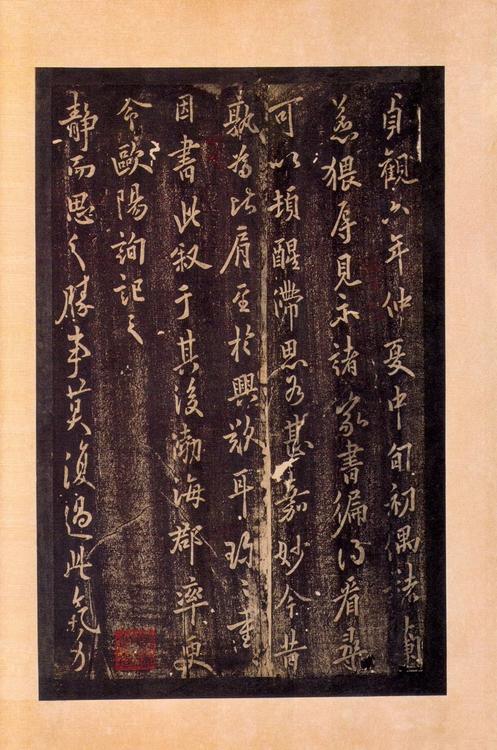 貞觀六年仲夏中旬初偶
羔猥辱見示諸家書徧得看尋
可以頓醒滯思尤甚嘉妙今昔
孰為比肩至於興歎耳珍之重
因書此敘于其後渤海郡率更
令歐陽詢記之
靜而思之勝事莫復過此氣力